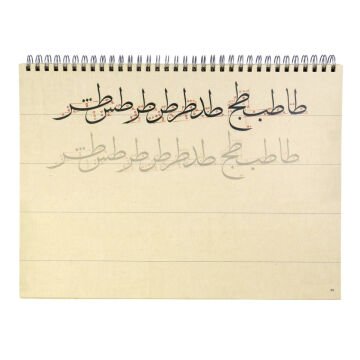 طا طب طج طد طر طر طر طس
طا طب طج طد طر طر طر طس